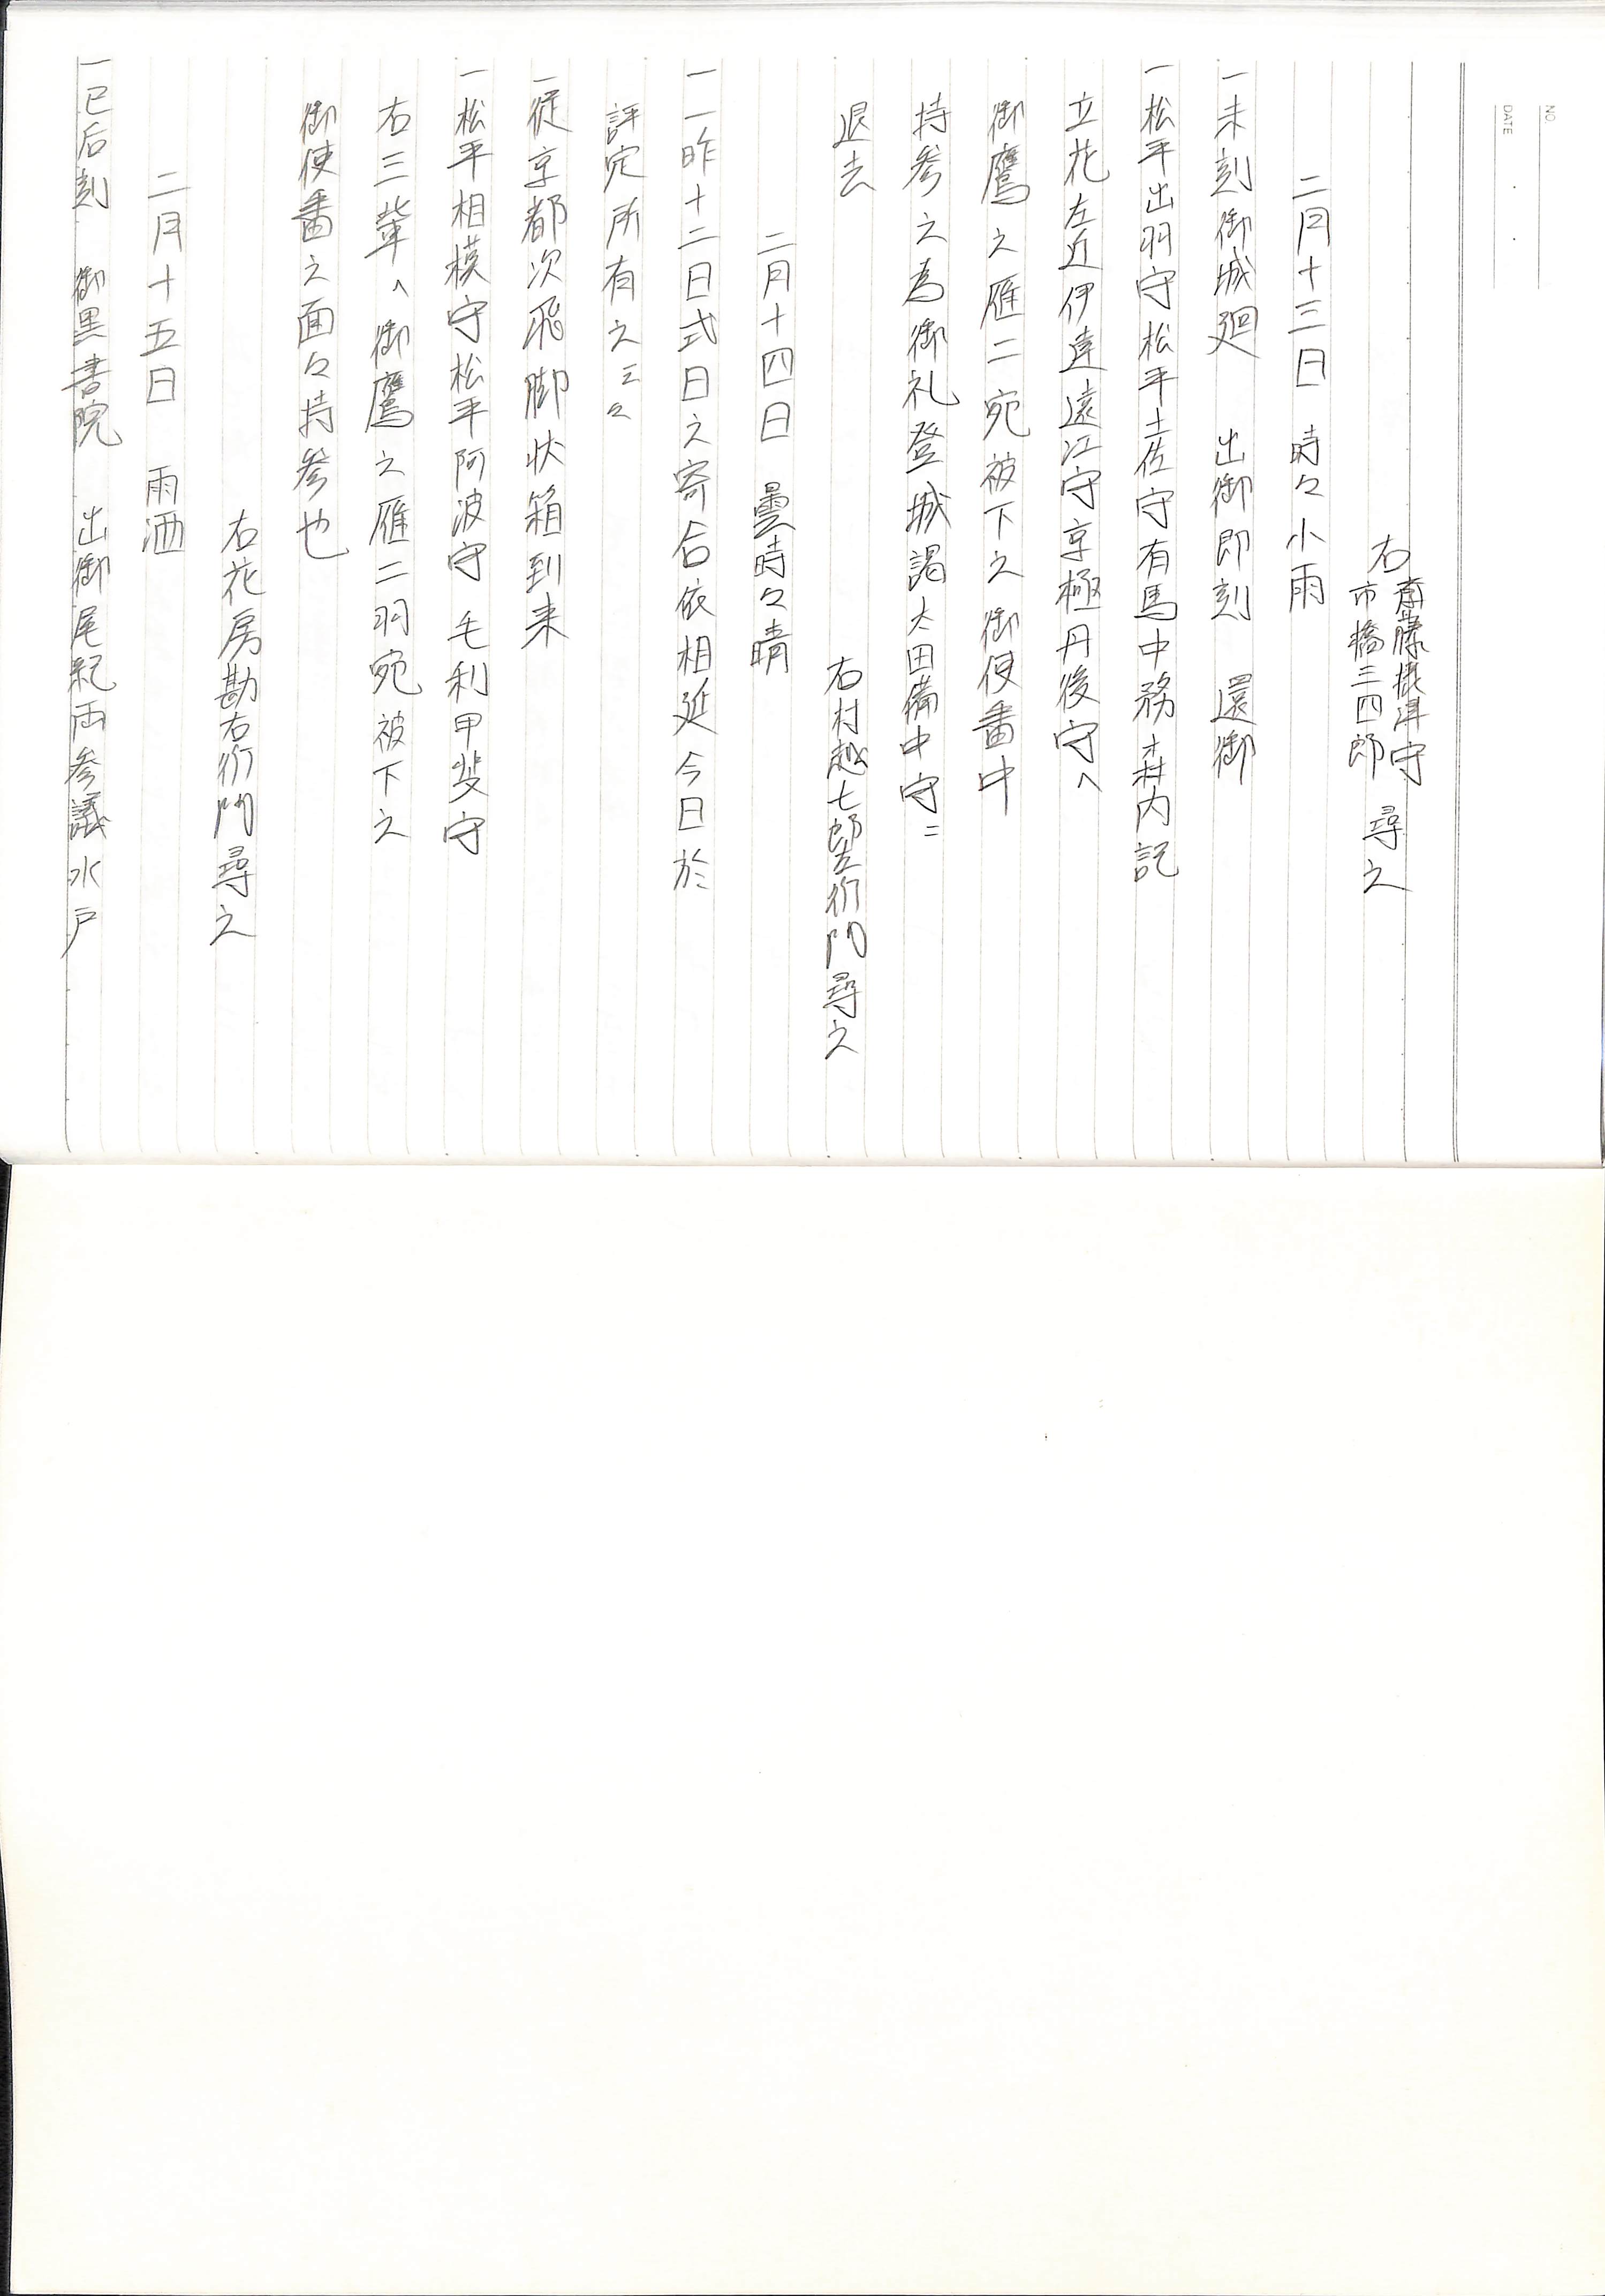 NO.
DATE
右 齋藤攝津守 市橋三四郎 尋之
二月十三日 時々小雨
一未刻御城廻 出御即刻 還御
一松平出羽守松平土佐守有馬中務森内記
立花左近伊達遠江守京極丹後守へ
御鷹之雁二宛被下之御使番中
持参之為御礼登城謁太田備中守ニ
退去
右村越七郎左衛門尋之
二月十四日 曇時々晴
一一昨十二日式日之寄合依相延今日於
評定所有之云々
一従京都次飛脚状箱到来
一松平相模守松平阿波守毛利甲斐守
右三輩へ御鷹之雁二羽宛被下之
御使番之面々持参也
右花房勘右衛門尋之
二月十五日 雨洒
一巳后刻 御黒書院 出御尾紀両参議水戸